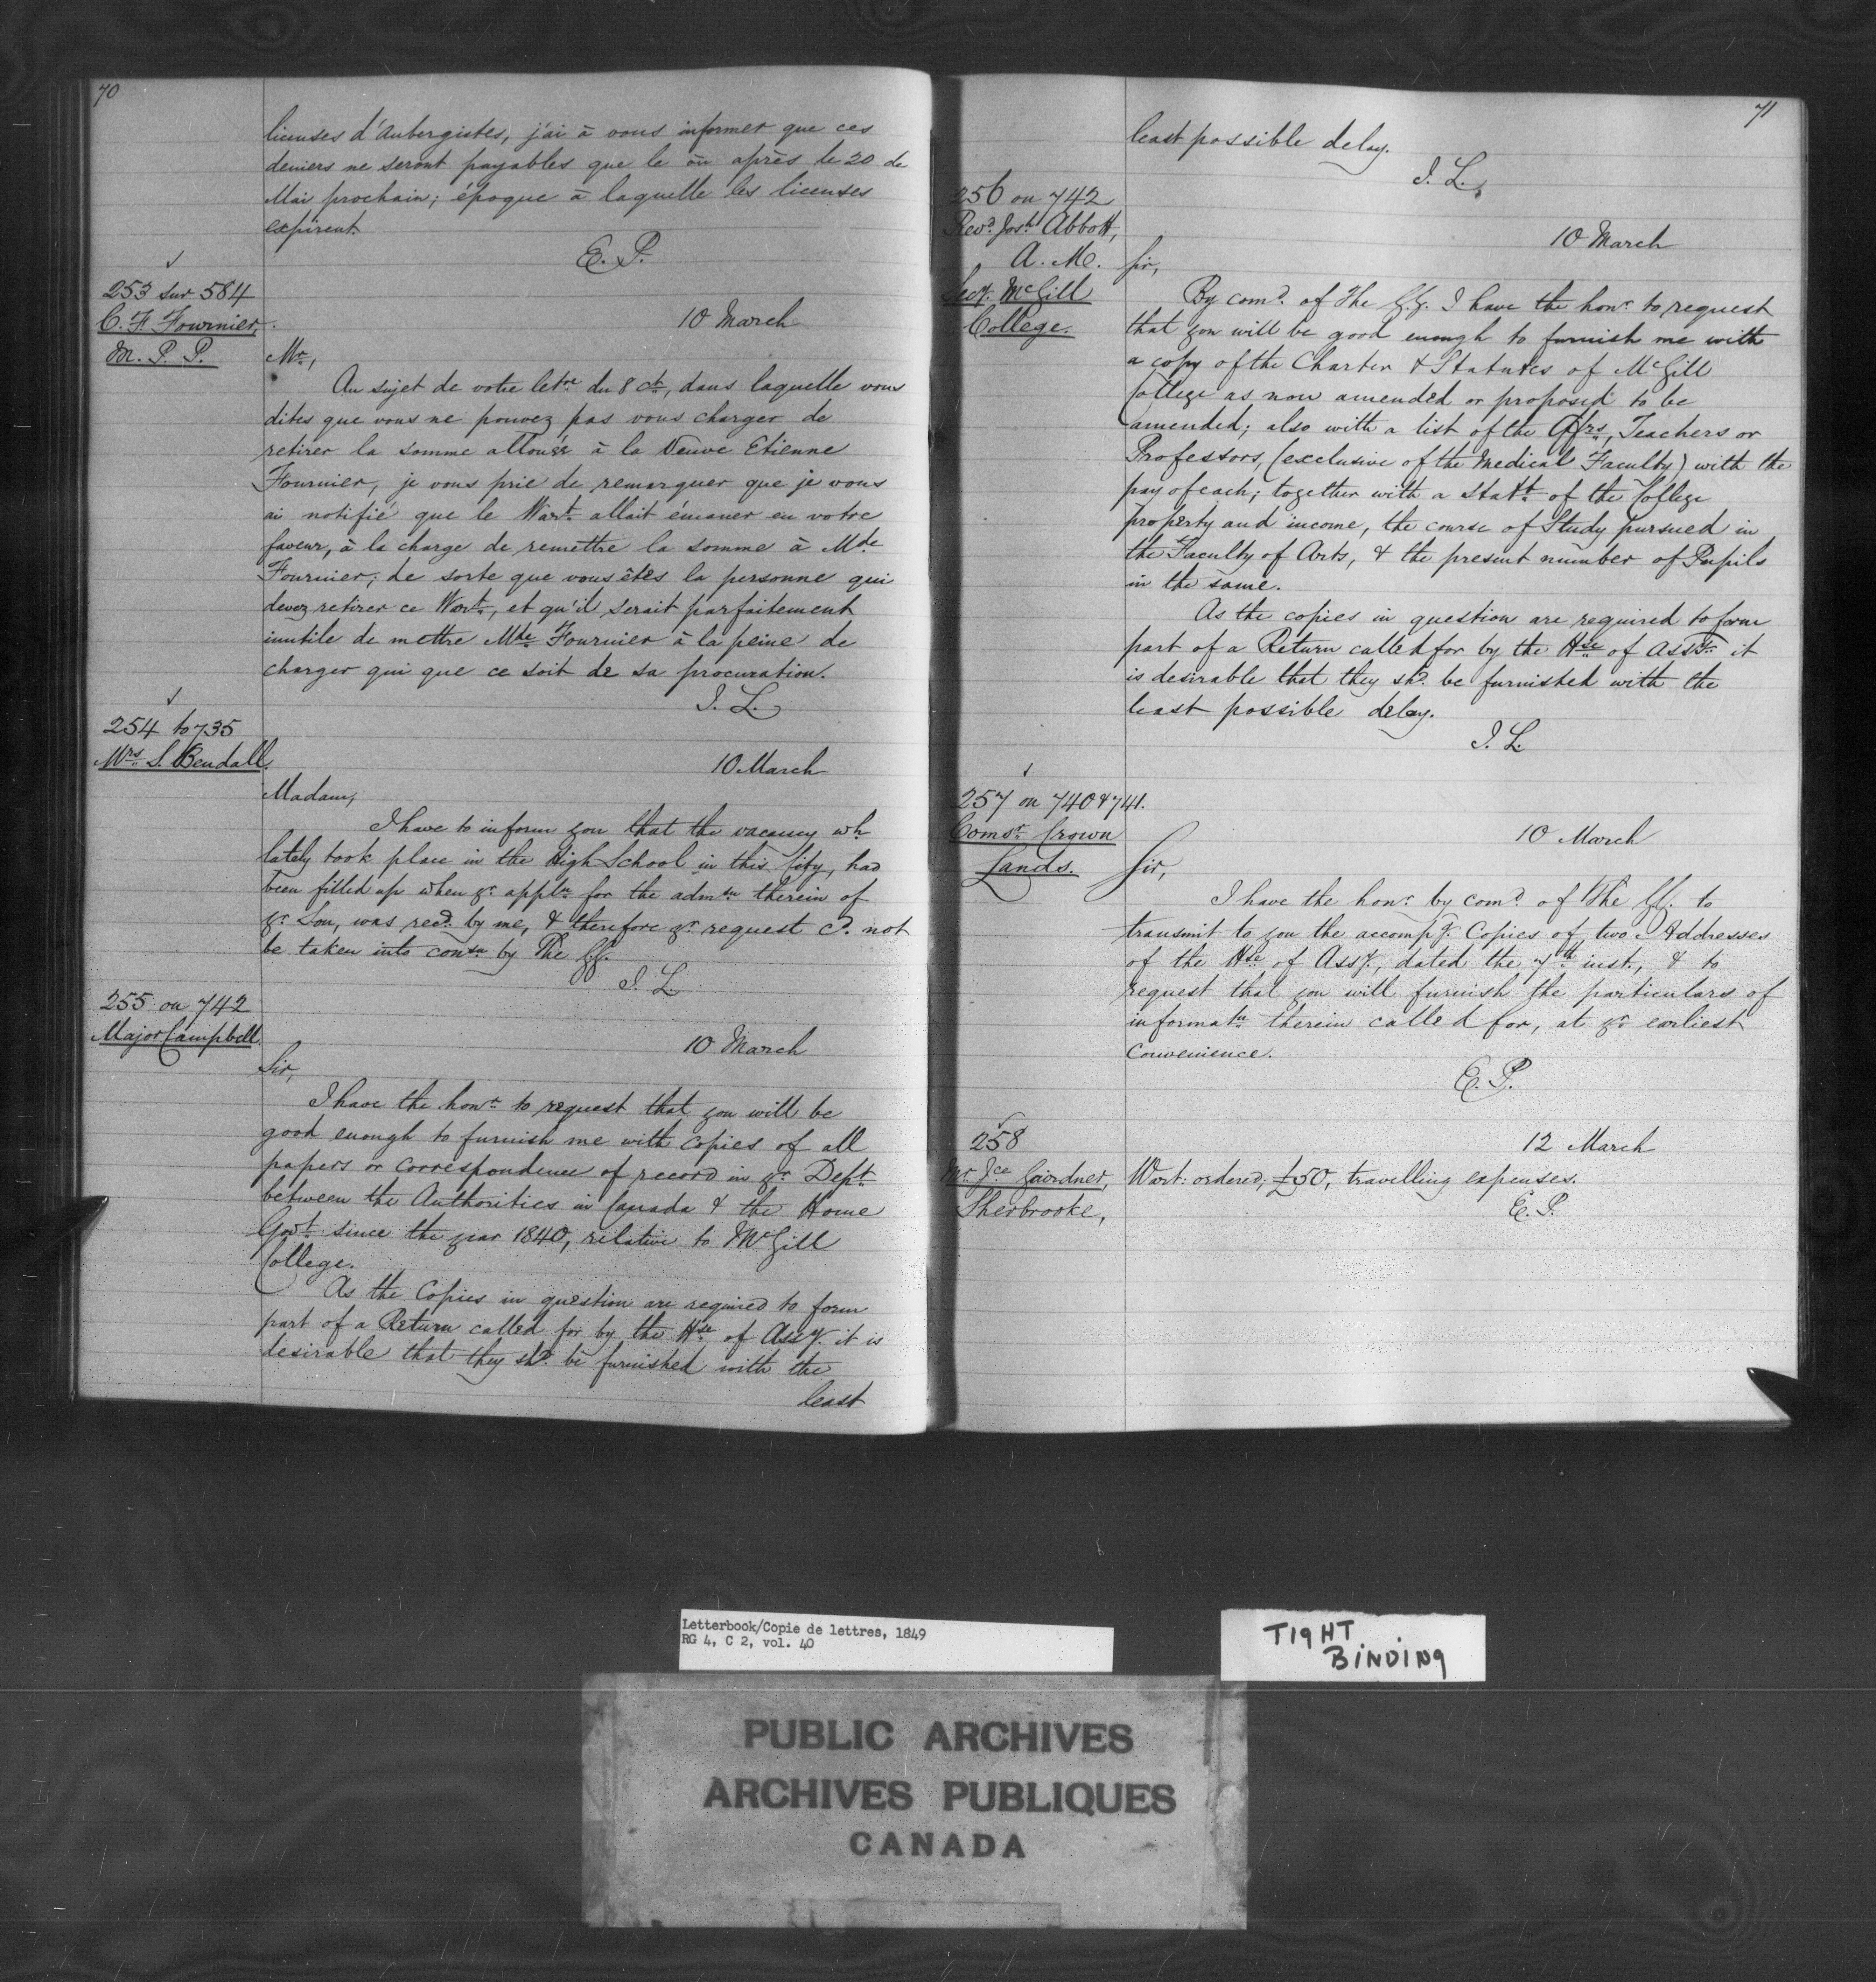 70
licenses d'Aubergistes, j'ai à vous informer que ces
deniers ne seront payables que le ou après le 20 de
Mai prochain; époque à laquelle les licenses
expirent.
E. P.
253 sur 584
C. F. Fournier,
M. P. P.
10 March
Mr,
Au sujet de votre letre du 8 ct, dans laquelle vous
dites que vous ne pouvez pas vous charger de
retirer la somme allouée à la Veuve Etienne
Fournier, je vous prie de remarquer que je vous
ai notifié que le Wart allait émaner en votre
faveur, à la charge de remettre la somme à Mde
Fournier; de sorte que vous êtes la personne qui
devez retirer ce Wart, et qu'il serait parfaitement
inutile de mettre Mde Fournier à la peine de
charger qui que ce soit de sa procuration.
J. L.
254 to 735
Mrs S. Bendall.
10 March
Madam,
I have to inform you that the vacancy wh
lately took place in the High School in this City, had
been filled up when yr appln for the admsn therein of
yr Son, was recd by me, & therefore yr request cd. not
be taken into consn by The GG.
J. L.
255 on 742
Major Campbell.
10 March
Sir,
I have the honr to request that you will be
good enough to furnish me with copies of all
papers or correspondence of record in yr Dept
between the Authorities in Canada & the Home
Govt since the year 1840, relative to McGill
College.
As the Copies in question are required to form
part of a Return called for by the Hse of Assy. it is
desirable that they shd. be furnished with the
least
71
least possible delay.
J. L.
256 on 742
Revd. Josh Abbott,
A. M.
Secy. McGill
College.
10 March
Sir,
By comd. of The GG. I have the honr to request
that you will be good enough to furnish me with
a copy of the Charter & Statutes of McGill
College as now amended or proposed to be
amended; also with a list of the Offrs, Teachers or
Professors, (exclusive of the Medical Faculty) with the
pay of each; together with a Statt of the College
property and income, the course of Study pursued in
the Faculty of Arts, & the present number of Pupils
in the same.
As the copies in question are required to form
part of a Return called for by the Hse of Assy. it
is desirable that they shd. be furnished with the
least possible delay.
J. L.
257 on 740 & 741.
Comsr Crown
Lands.
10 March
Sir,
I have the honr by comd. of The GG. to
transmit to you the accompg. Copies of two Addresses
of the Hse of Assy., dated the 7th inst., & to
request that you will furnish the particulars of
informatn therein called for, at yr earliest
convenience.
E. P.
258
Mr Jce Gairdner,
Sherbrooke,
12 March
Wart: ordered; £50, travelling expenses.
E. P.
Letterbook/Copie de lettres, 1849
RG 4, C 2, vol. 40
TIGHT
BINDING
PUBLIC ARCHIVES
ARCHIVES PUBLIQUES
CANADA